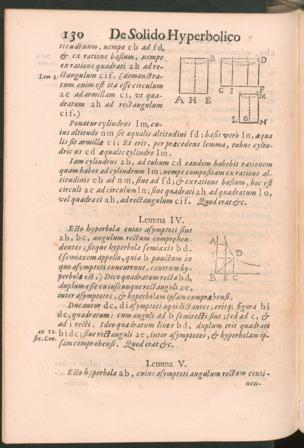 130 De Solido Hyperbolico
titudinum, nempe eb ad fd,
& ex ratione basium, nempe
ex ratione quadrati ah ad re-
Lem 1. ctangulum cif. (demonstra-
tum enim est ita esse circulum
ac ad armillam ci, ut qua-
dratum ah ad rectangulum
cif.)
B D
A H E C I F
M
L O N
Ponatur cylindrus lm, cu-
ius altitudo nm sit æqualis altitudini fd; basis verò ln, æqua
lis sit armillæ ci; Et erit, per præcedens lemma, tubus cylin-
dricus cd æqualis cylindro lm.
Iam cylindrus ab, ad tubum cd eandem habebit rationem
quam habet ad cylindrum lm; nempe compositam ex ratione al-
titudinis eb ad nm, sive ad fd; & ex ratione basium, hoc est
circuli ae ad circulum ln; sive quadrati ah ad quadratum lo,
vel quadrati ah, ad rectangulum cif. Quod erat &c.
Lemma IV.
Esto hyperbola cuius asymptoti sint
ab, bc, angulum rectum comprehen-
dentes; sitque hyperbolæ semiaxis bd.
(semiaxem appello, quia b punctum in
quo asymptoti concurrunt, centrum hy-
perbolæ est.) Dico quadratum rectæ bd,
duplum esse cuiuscunque rectanguli ae,
inter asymptotos, & hyperbolam ipsam compræhensi.
A I
D
B E C
Ducantur dc, di asymptotis æquidistantes; eritq; figura bi
dc, quadratum; cum anguli ad b semirecti sint; sed ad c, &
ad i recti. Ideo quadratum lineæ bd, duplum erit quadrati
ex 12. sec. Con. bidc; sive rectanguli ae, inter asymptotos, & hyperbolam ip-
sam compræhensi. Quod erat &c.
Lemma V.
Esto hyperbola ab, cuius asymptoti angulum rectum conti-
nen-